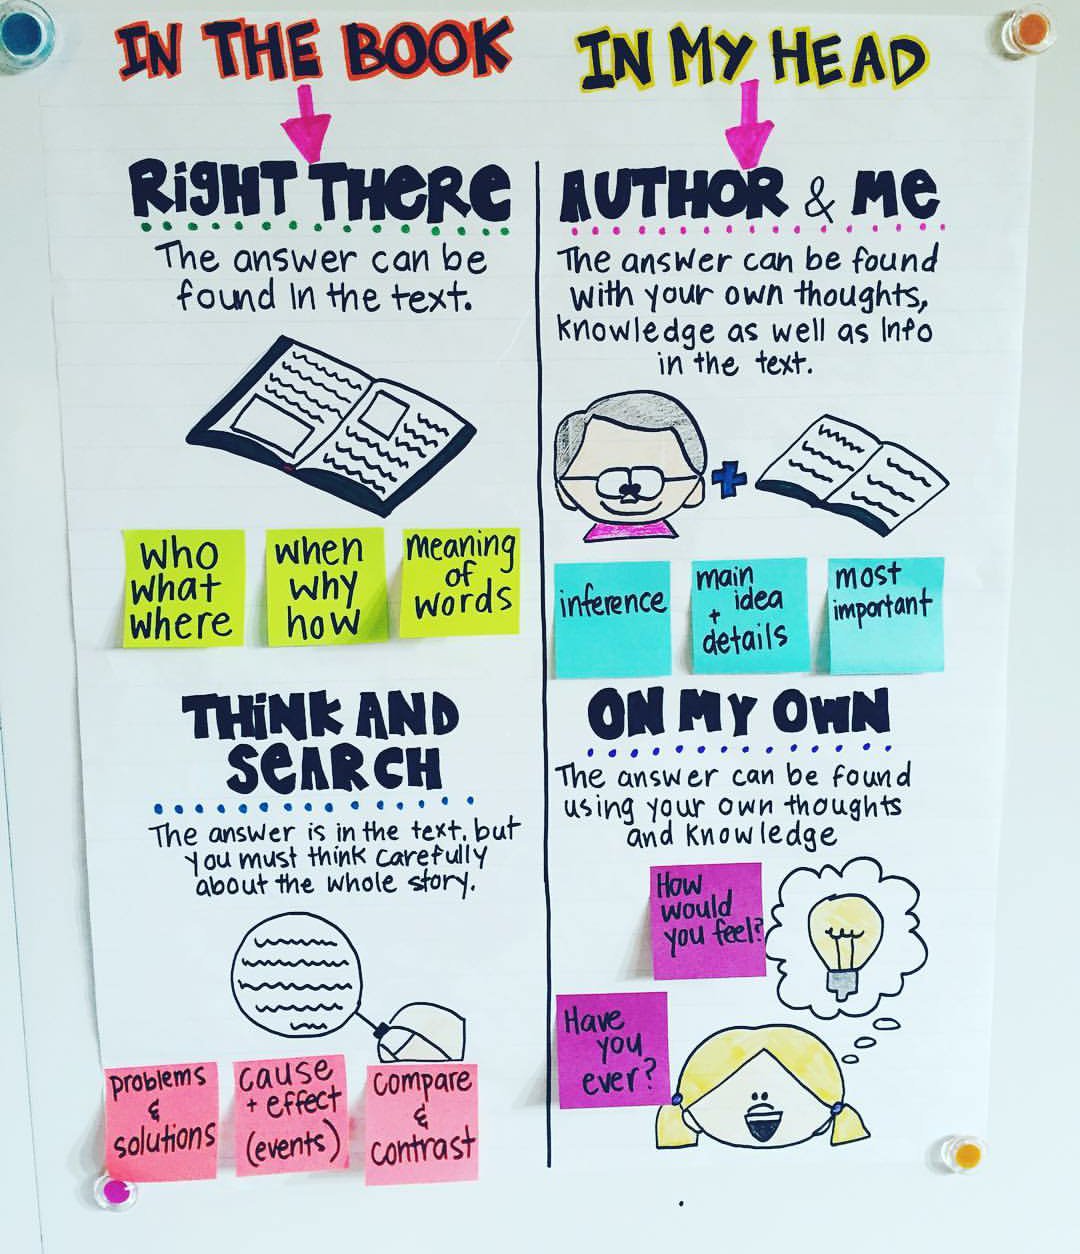 IN THE BOOK
RiGHT THeRe
The answer can be
found In the text.
who
what
where
when
why
how
meaning
of
words
THiNK AND
SeARCH
The answer is in the text, but
you must think carefully
about the whole story.
problems
&
solutions
cause
+ effect
(events)
compare
&
contrast
IN MY HEAD
AUTHOR & Me
The answer can be found
with your own thoughts,
knowledge as well as Info
in the text.
inference
main
idea
+
details
most
important
ON MY OWN
The answer can be found
using your own thoughts
and knowledge
How
would
you feel?
Have
you
ever?